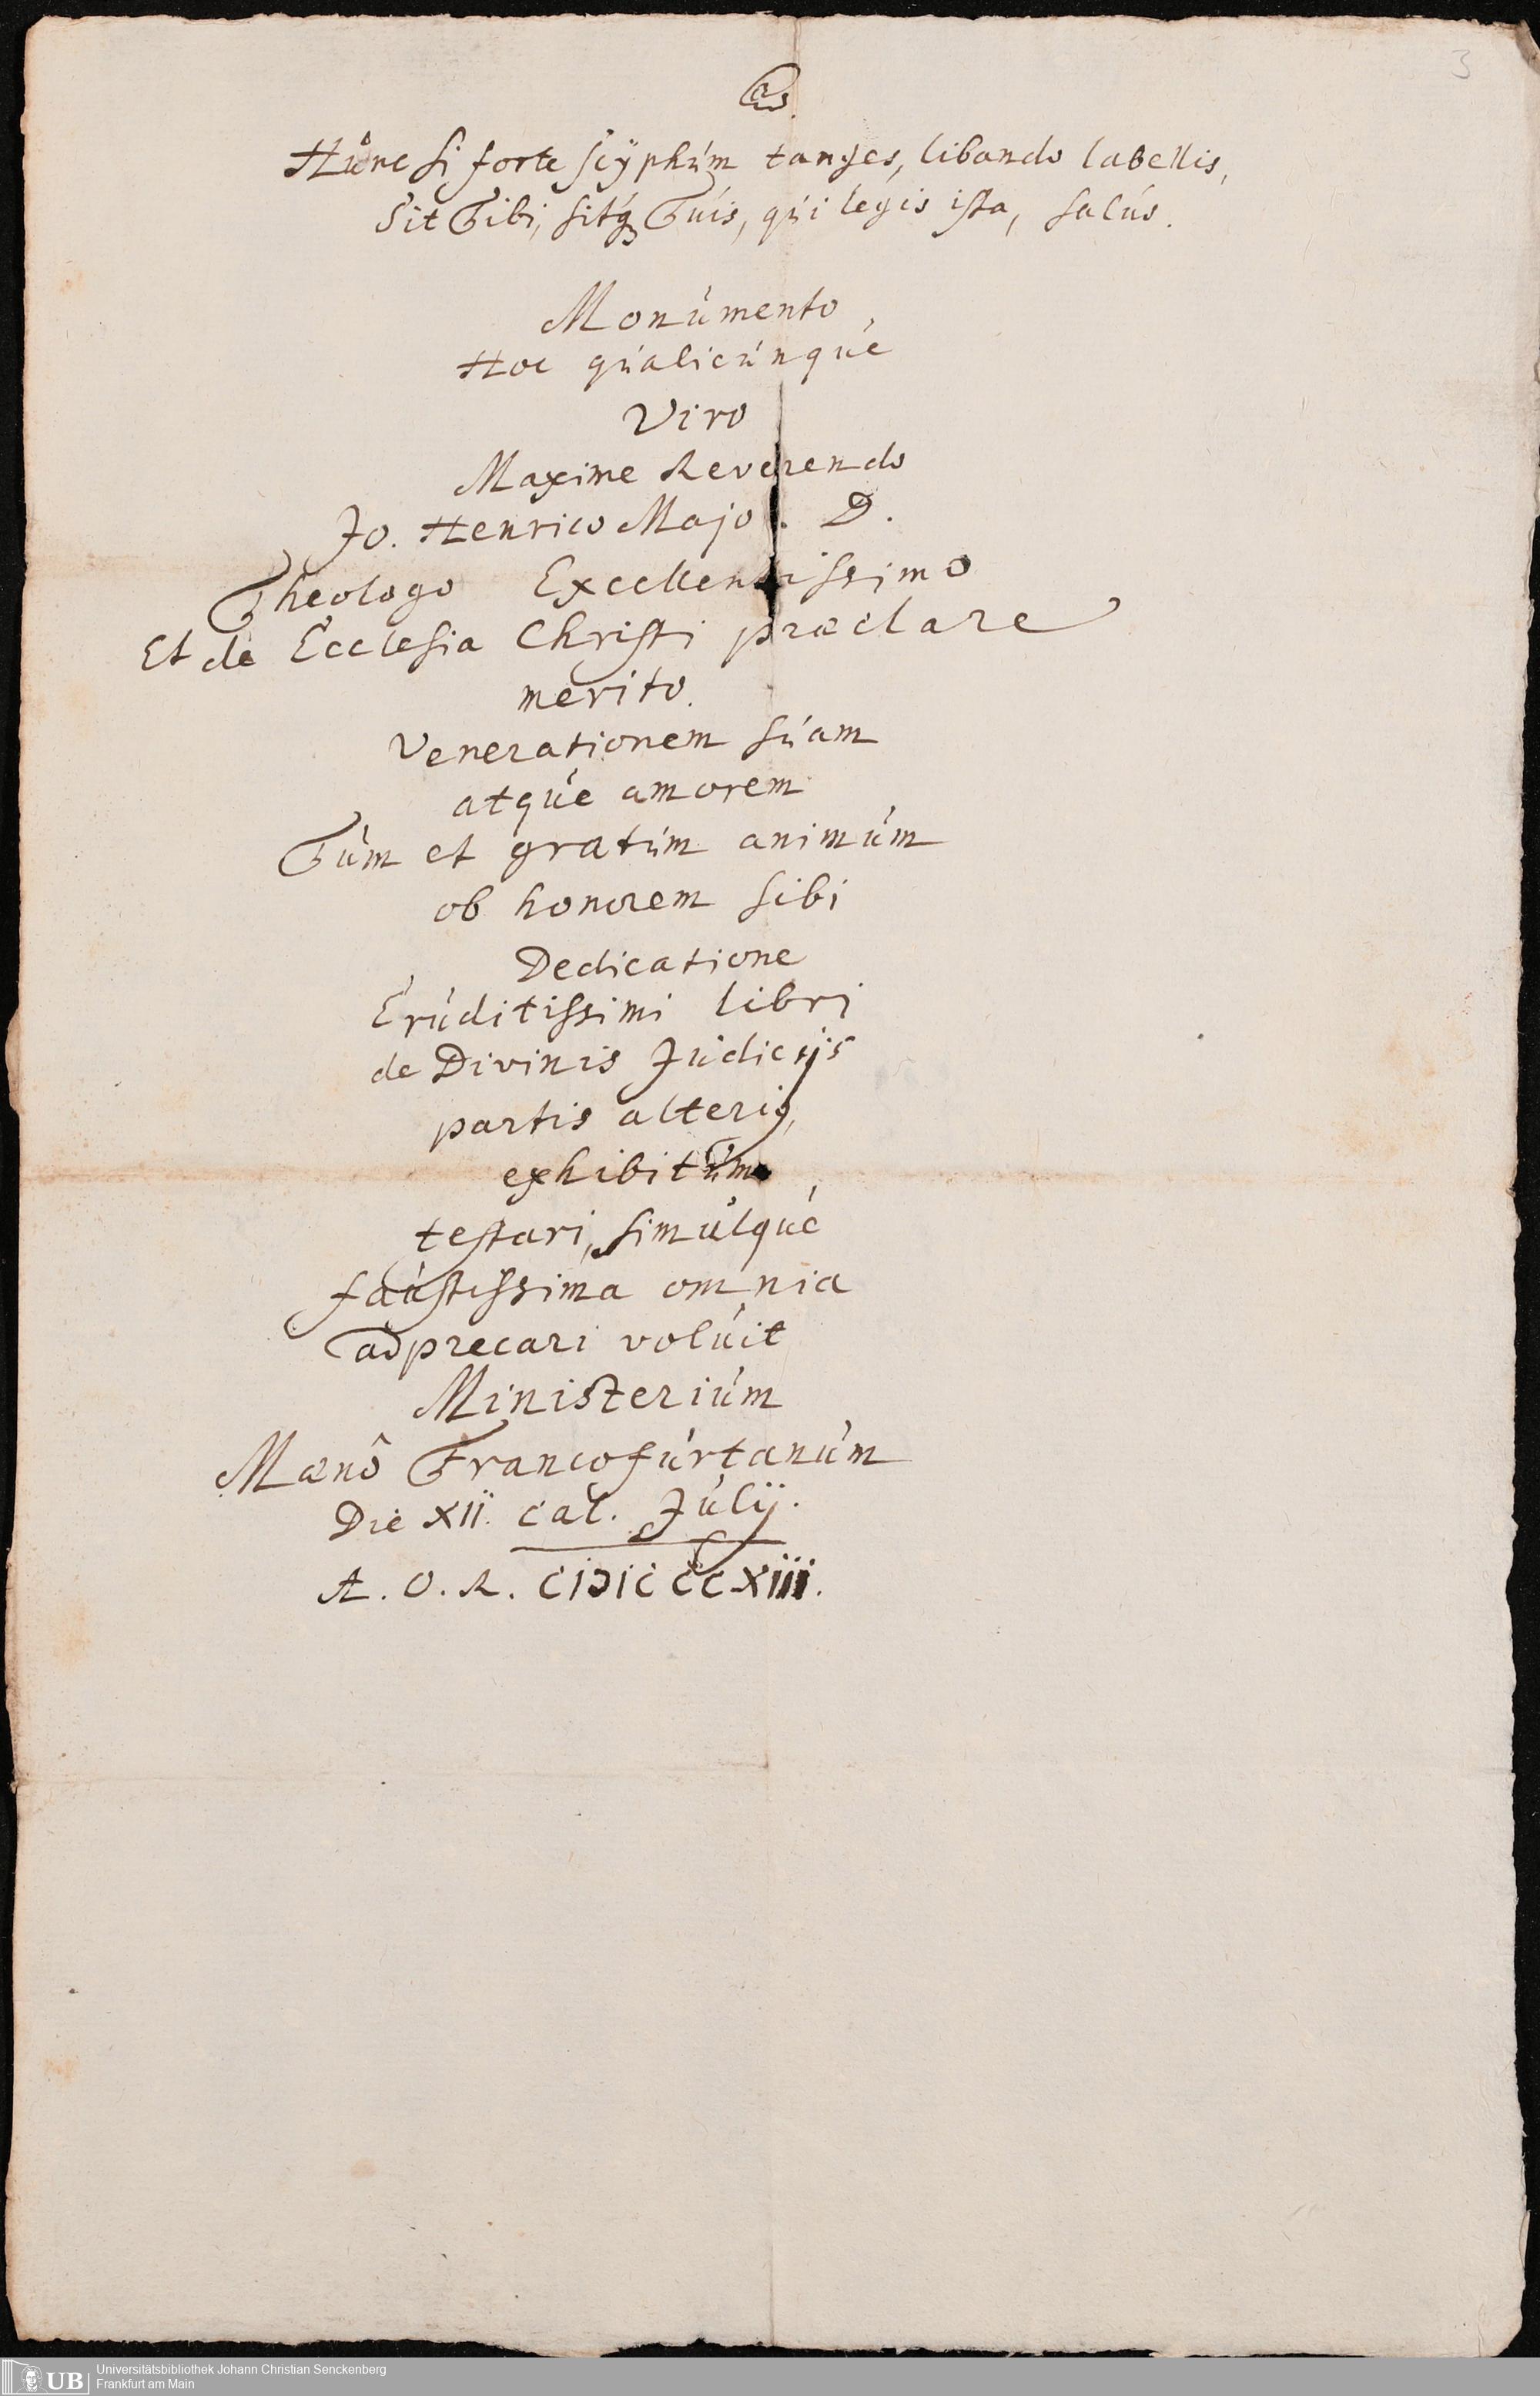 3
Hunc si forte scÿphum tanges, libando labellis,
Sit Tibi, sitq́ꝫ Tuis, qui legis ista, salus.
Monumento
Hoc qualicunque
Viro
Maxime Reverendo
Jo. Henrico Majo. D.
Theologo Excellentissimo
Et de Ecclesia Christi præclare
merito.
Venerationem suam
atque amorem
Tum et gratum animum
ob honorem sibi
Dedicatione
Eruditissimi libri
de Divinis Judicijs
partis alteris,
exhibitum
testari, simulque
faustissima omnia
adprecari voluit
Ministerium
Mænô Francofurtanum
Die XII. Cal. Julij.
A. O. R. CIƆIC CC XIII.
UB
Universitätsbibliothek Johann Christian Senckenberg
Frankfurt am Main